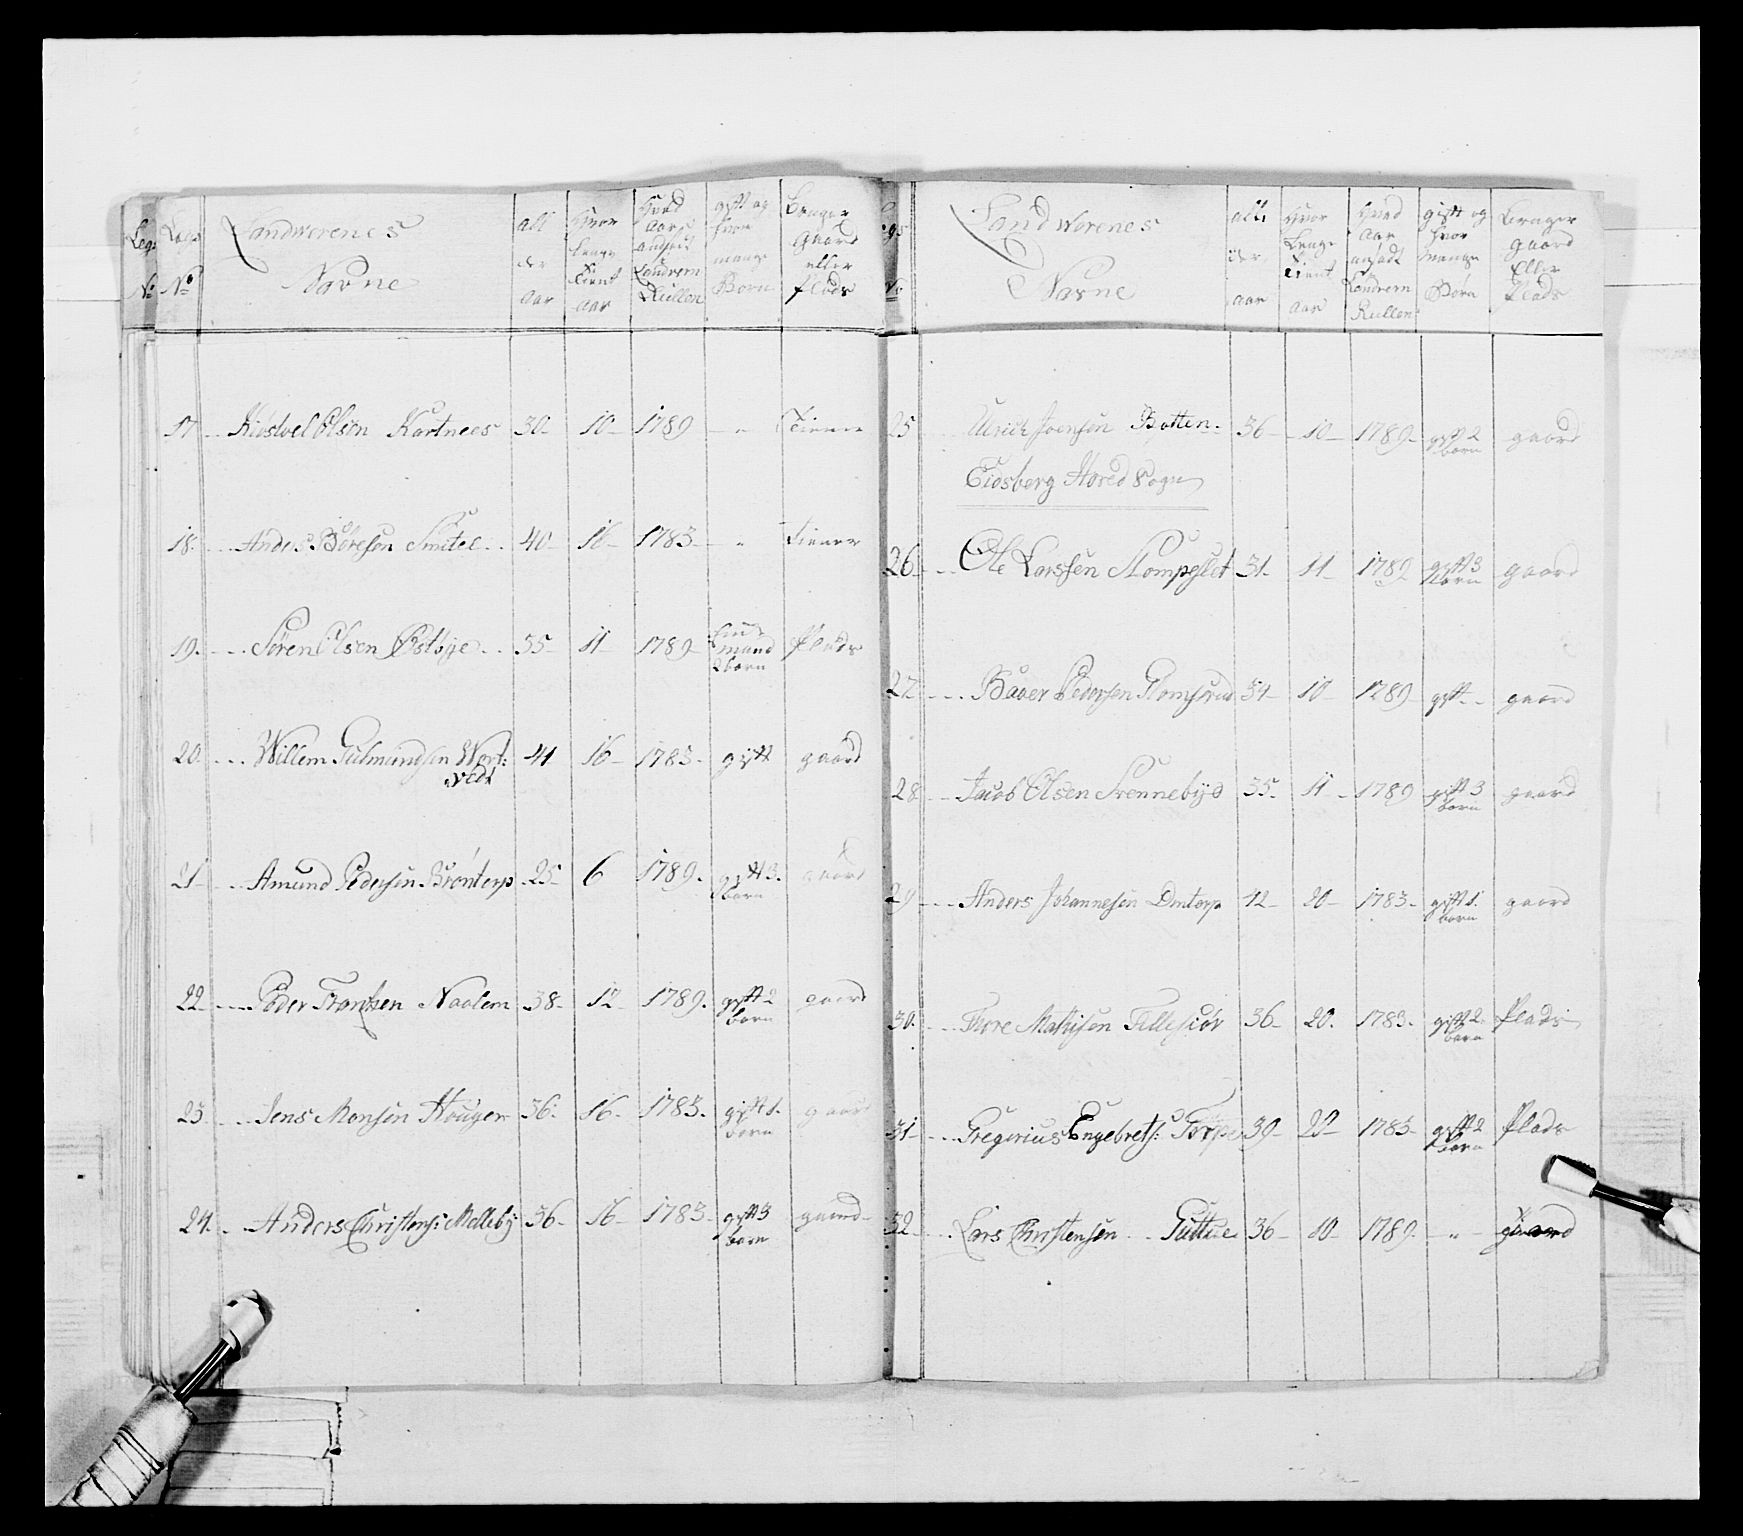 Legs No
Landwerenes Navne
all der aar
Hvor Lenge Tient aar
Hvad Aar ansadt Landvern Rullen
gift og hvor mange Born
Bruger Gaard eller Plads
17 Kiostoel Olsen Kartnees 30 10 1789 " Tiener
18. Anders Boresen Smitel 40 16 1783 " Tiener
19. Søren Olsen Ostbye 35 11 1789 mand 2 born Plads
20. Willem Gulmundsen Wort: 41 16 1783 gift gaard
vedt
21 Amund Pedersen Brøntorp 25 6 1789 gift 3 born gaard
22 Peder Frantsen Naalem 38 12 1789 gift 2 born gaard
23 Jens Monsen Houger 36 16 1783 gift 1 born gaard
24. Anders Christens: Melleby 36 16 1783 gift 3 born gaard
Landwerenes Navne
alt der aar
Hvor Lenge Tient aar
Hvad Aar ansadt Landvern Rullen
gift og hvor mange Born
Bruger gaard Eller Plads
25 Ulrich Joensen Botten 36 10 1789 gift 2 born gaard
Eidsberg Hoved Sogn
26 Ole Larssen Mompeslet 31 11 1789 gift 3 born gaard
27 Baaer Pedersen Glomsrud 34 10 1789 gift gaard
28 Jacob Olsen Svennebye 35 11 1789 gift 3 born gaard
29 Anders Johannesen Dntorp 42 20 1783 gift 1 born gaard
30. Thore Mathisen Fillesiør 36 20. 1783. gift 2 born Plads
31 Gregorius Engebrets: Torpe 39 22 1783 gift 2 born Plads
32 Lars Christensen Guttue 36 10 1789 " gaard